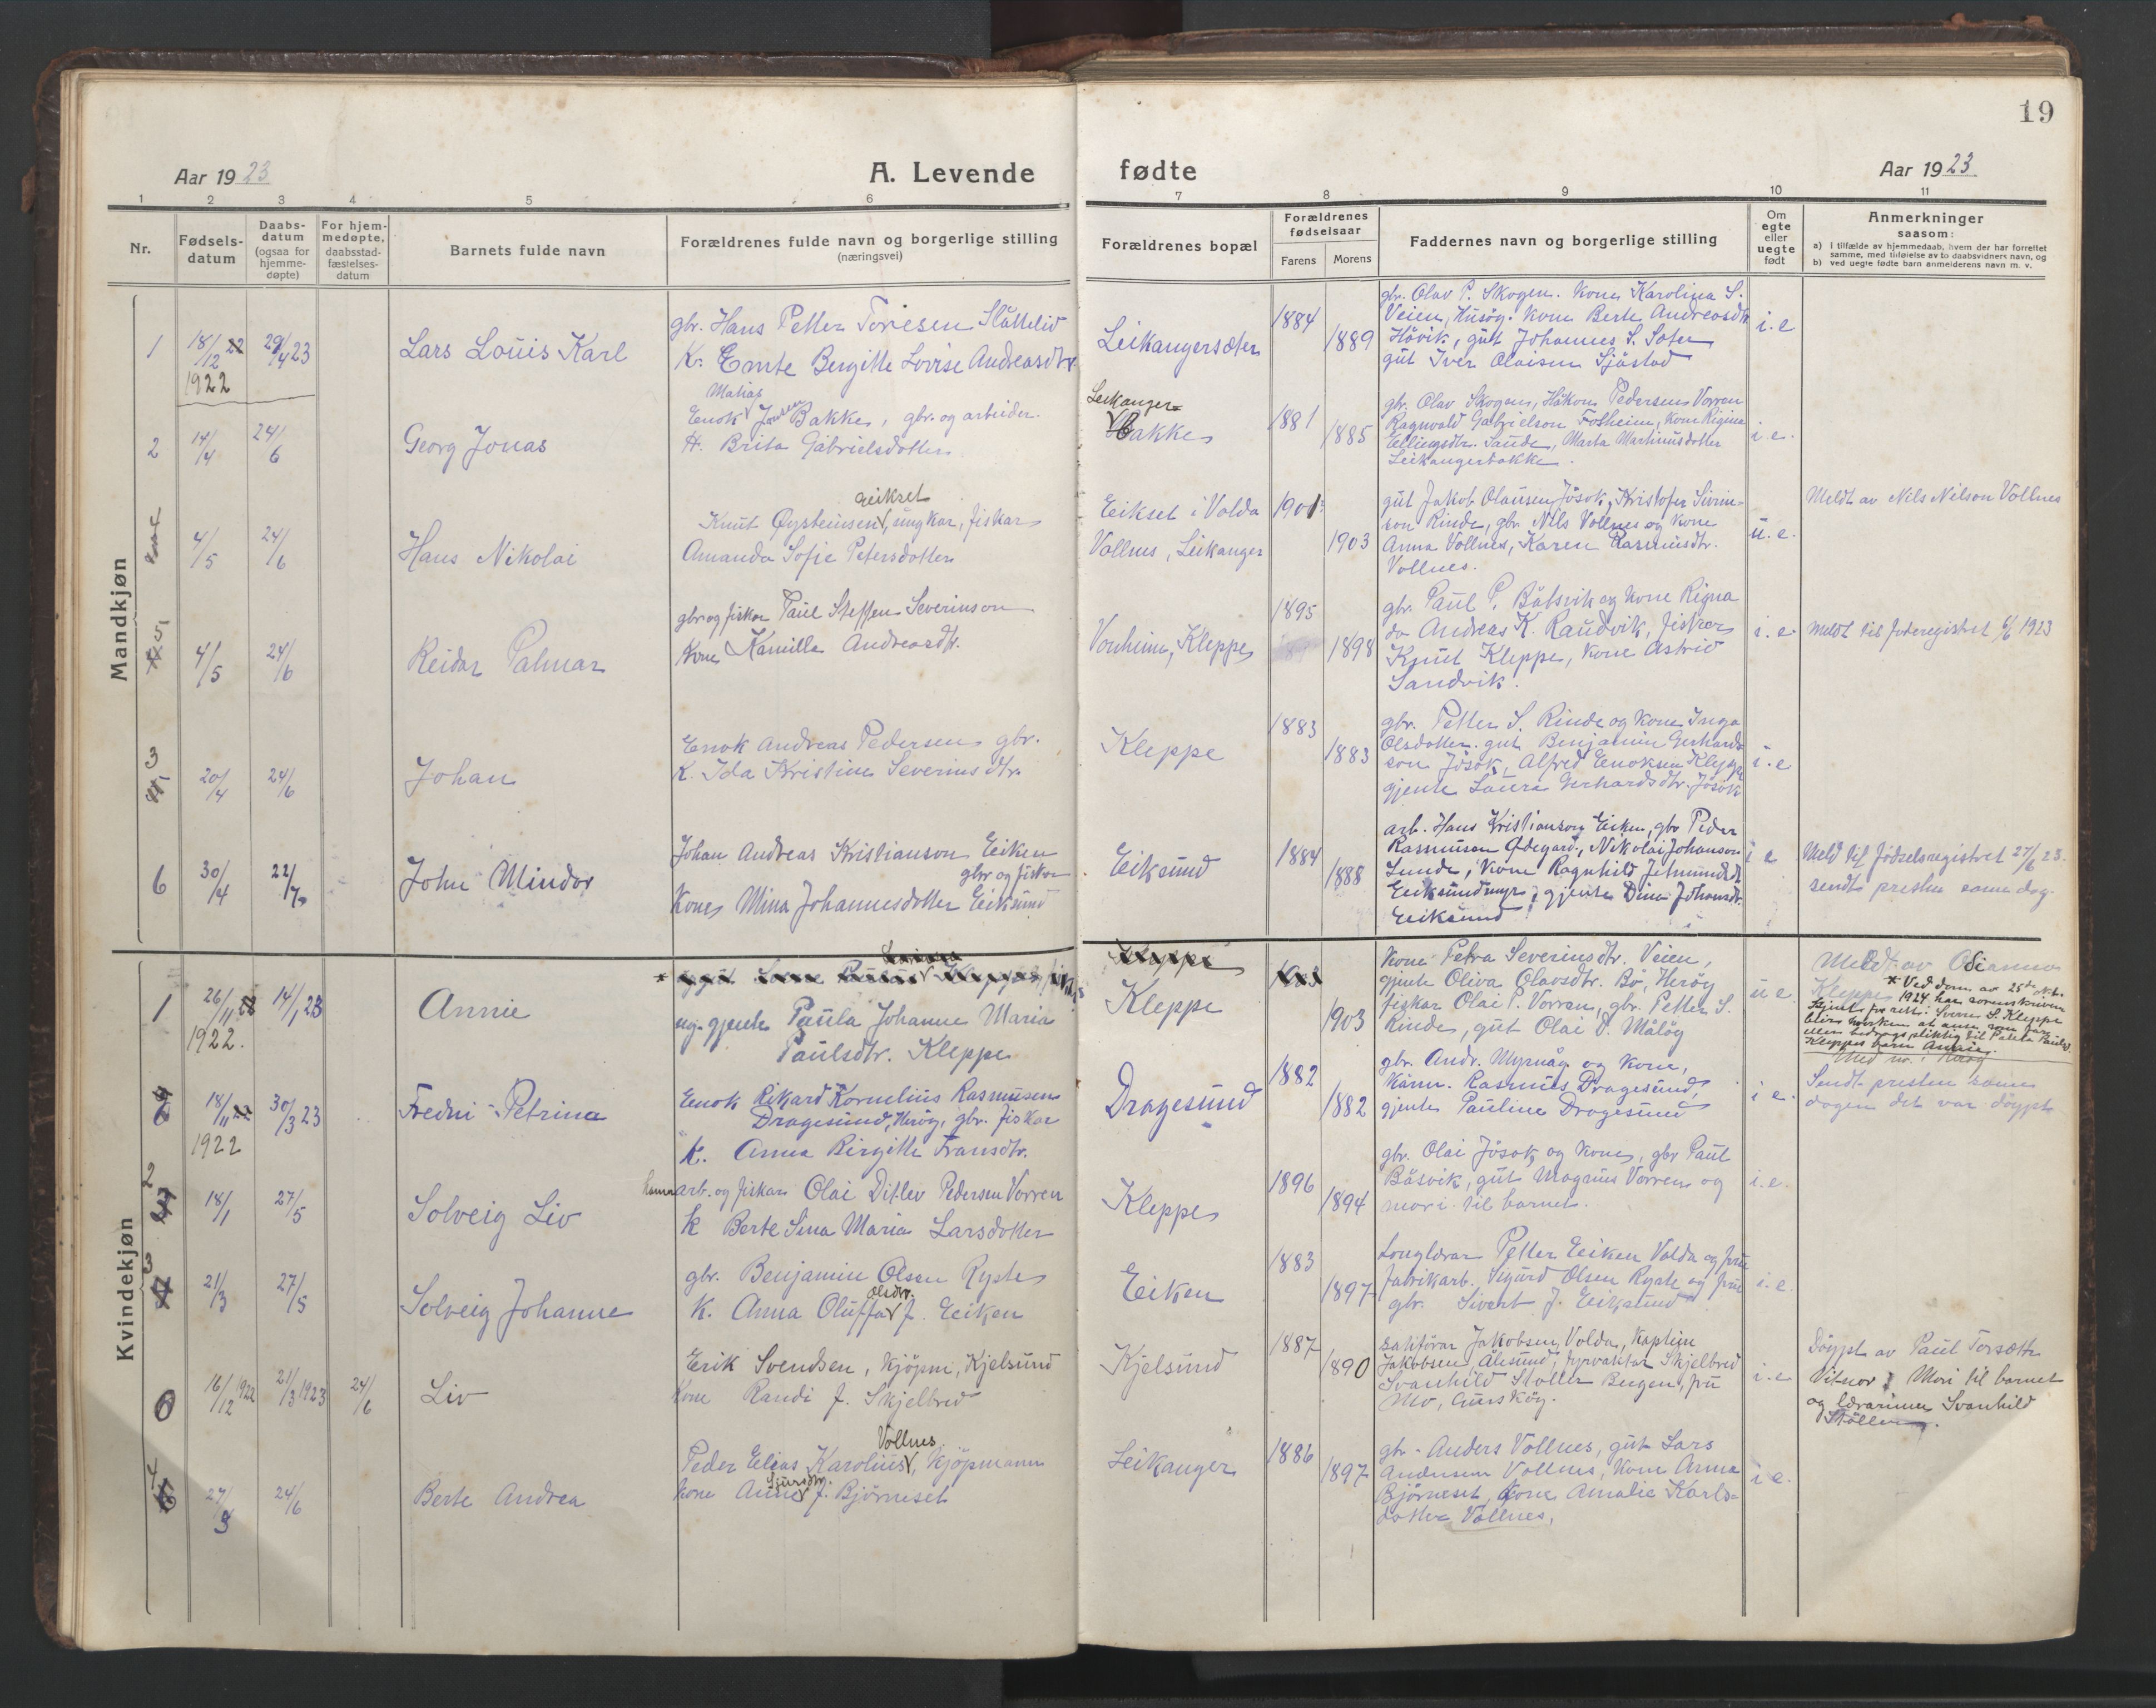 19
Aar 1923
A. Levende
fødte
Aar 1923
1 2 3 4 5 6 7 8 9 10 11
Nr.
Fødsels-
datum
Daabs-
datum
(ogsaa for
hjemme-
døpte)
For hjem-
medøpte,
daabsstad-
fæstelses-
datum
Barnets fulde navn
Forældrenes fulde navn og borgerlige stilling
(næringsvei)
Forældrenes bopæl
Forældrenes
fødselsaar
Farens Morens
Faddernes navn og borgerlige stilling
Om
egte
eller
uegte
født
Anmerkninger
saasom:
a) i tilfælde av hjemmedaab, hvem der har forrettet
samme, med tilføielse av to daabsvidners navn, og
b) ved uegte fødte barn anmelderens navn m. v.
Mandkjøn
1
18/12 22
1922
29/4 23
Lars Louis Karl
gbr. Hans Petter Toriesen Slåttelid
K. Emte Bergitte Lovise Andreasdtr.
Leikangersæter
1884
1889
gbr. Olav P. Skogen. Kone Karolina S.
Veien, Husøy. Kone Berte Andreasdtr
Håvik, gut Johannes S. Sæter
gut Iver Olaisen Sjåstad
i.e
2
14/4
24/6
Georg Jonas
Matias
Enok Bakke, gbr. og arbeider.
H. Brita Gabrielsdotter
Leikanger-
Bakke
1881
1885
gbr. Olav Skogen, Håkon Pedersen Vorren
Ragnvald Gabrielson Fosheim, Kone Regine
Ellingsdtr. Sande, Marta Martinusdotter
Leikangerbakke.
i.e.
4/5
24/6
Hans Nikolai
Eikset
Knut Øysteinsen, ungkar, fiskar
Amanda Sofie Petersdotter
Eikset i Volda
Vollnes, Leikanger
1901
1903
gut Jakob Olausen Jøsok, Kristofer Sivrin-
son Rinde, gbr. Nils Vollnes og kone
Anna Vollnes, Karen Rasmusdtr.
Vollnes.
u.e.
Meldt av Nils Nilson Vollnes
4/5
24/6
Reidar Palmar
gbr og fiskar Paul Steffen Severinson
Kone Kamilla Andreasdtr.
Vonheim, Kleppe
1895
1898
gbr. Paul P. Båtsvik og kone Regna
do Andreas K. Raudvik, fiskar
Knut Kleppe, kone Astrid
Sandvik.
i.e
Meldt til foderegistret 6/6 1923
3
20/4
24/6
Johan
Enok Andreas Pedersen gbr.
K. Ida Kristine Severinsdtr.
Kleppe
1883
1883
gbr. Petter S. Rinde og kone Inga
Olsdotter. gut Benjamin Gerhard-
son Jøsok, Alfred Enoksen Kleppe
gjente Laura Gerhardsdtr. Jøsok
i.e
6
30/4
22/7
John Mindor
Johan Andreas Kristianson Eiken
gbr og fiskar
Kone Mina Johannesdotter Eiksund
Eiksund
1884
1888
arb. Hans Kristianson Eiken, gbr Peder
Rasmusen Ødegard, Nikolai Johanson
Sunde, Kone Ragnhild Jetmundsdtr
Eiksundmyr, gjente Dina Johansdtr.
Eiksund
i e
Meld til fødselsregistret 27/6 23.
sendt presten same dag.
Kvindekjøn
1
26/11
1922.
14/1 23
Annie
ug. gjente Paula Johanne Maria
Paulsdtr. Kleppe
Kleppe
1903
Kone Petra Severinsdtr. Veien,
gjente Oliva Olavsdtr. Bø, Herøy
fiskar Olai P. Vorren, gbr. Petter S.
Rinde, gut Olai O. Måløy
u e.
Meldt av
Kleppe
* Ved dom av 25de
1924 har sorenskriveren
kjent for rett: Sverre S. Kleppe
blir hverken at anse som far
eller bidragspliktig til Paula Pauls.
Kleppes barn Annie.
18/11
1922
30/3 23
Fredni-Petrina
Enok Rikard Kornelius Rasmusen
Dragesund, Herøy, gbr. fiskar
K. Anna Birgitte Fransdtr.
Dragesund
1882
1882
gbr. Andr. Myrvåg og kone,
kårm. Rasmus Dragesund,
gjente Pauline Dragesund
i e.
Sendt presten same
dagen det var døypt
2
18/1
27/5
Solveig Liv
arb. og fiskar Olai Ditlev Pedersen Vorren
K Berte Sina Maria Larsdotter
Kleppe
1896
1894
gbr. Olai Jøsok og kone, gbr Paul
Båsvik, gut Magnus Vorren og
mori til barnet.
i.e.
3
21/3
27/5
Solveig Johanne
gbr. Benjamin Olsen Ryste
Olsdtr.
K. Anna Oluffa f. Eiken
Eiken
1883
1897
Longlærar Petter Eiken Volda og frue
fabrikarb. Sigurd Olsen Ryste og frue
gbr. Sivert J. Eiksund
i e.
0
16/12 1922
21/3 1923
24/6
Liv
Erik Svendsen, kjøpm, Kjelsund
Kone Randi f. Skjelbred
Kjelsund
1887
1890
sakførar Jakobsen, Volda, Kaptein
Jakobsen, Ålesund, fyrvaktar Skjelbred
Svanhild Støller Bergen, fru
Mo, Aurskog.
i.e
Døypt av Paul Torsæth
Vitnor: Mori til barnet
og lærarinne Svanhild
Støller.
4
27/3
24/6
Berte Andrea
Vollnes
Peder Elias Karolius, kjøpmann
Sjursdtr.
Kone Anne f. Bjørneset
Leikanger
1886
1897
gbr. Anders Vollnes, gut Lars
Andersen Vollnes, Kone Anna
Bjørneset, kone Amalie Karls-
dotter Vollnes.
i e.